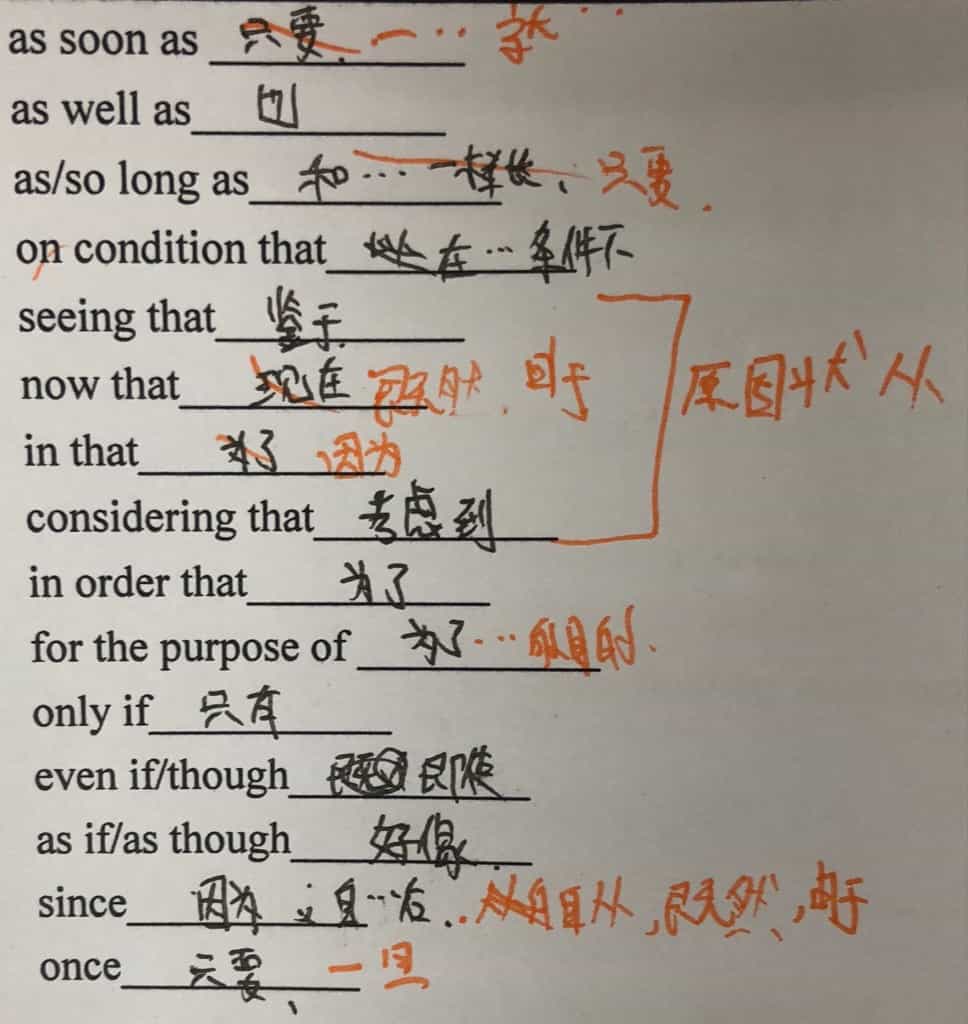 as soon as 只要. 一…就…
as well as
as/so long as 和…一样长、只要.
on condition that 在…条件下
seeing that 鉴于.
now that 现在 既然. 由于
in that 为了 因为
considering that 考虑到
原因状从
in order that 为了
for the purpose of 为了…的目的.
only if 只有
even if/though 即使
as if/as though 好像.
since 因为 自…后.. 自从,既然,由于
once 只要、一旦